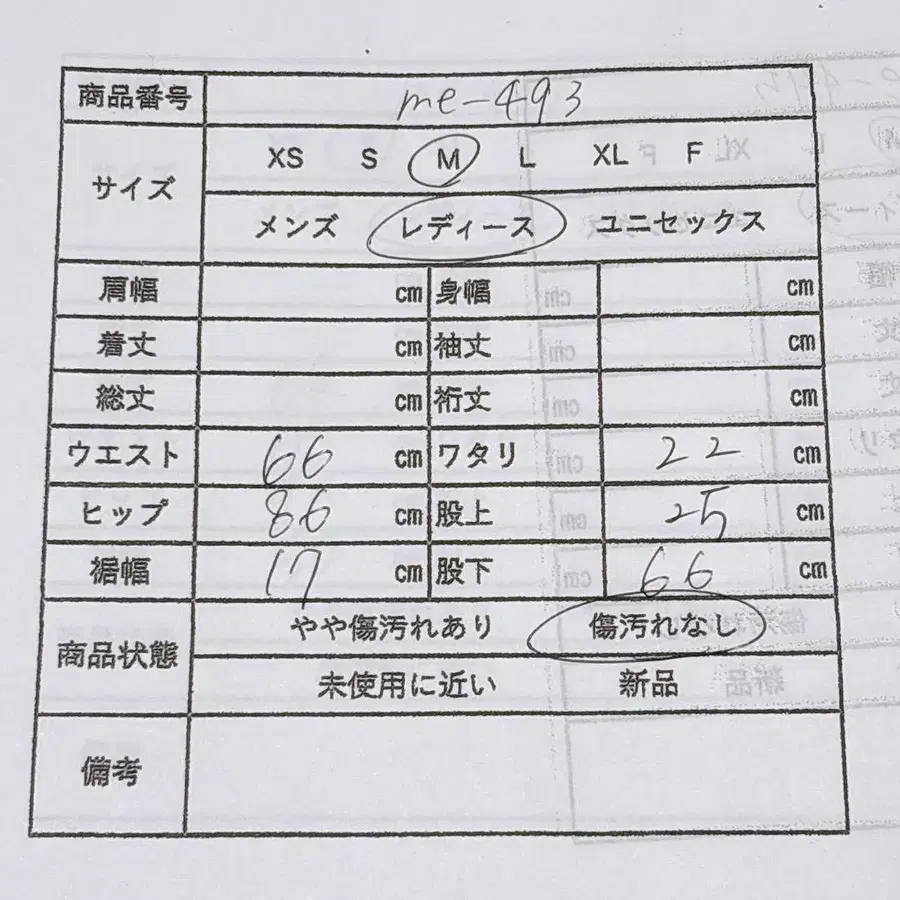 商品番号 me-493
サイズ XS S M L XL F
メンズ レディース ユニセックス
肩幅 cm 身幅 cm
着丈 cm 袖丈 cm
総丈 cm 裄丈 cm
ウエスト 66 cm ワタリ 22 cm
ヒップ 86 cm 股上 25 cm
裾幅 17 cm 股下 66 cm
商品状態 やや傷汚れあり 傷汚れなし
未使用に近い 新品
備考